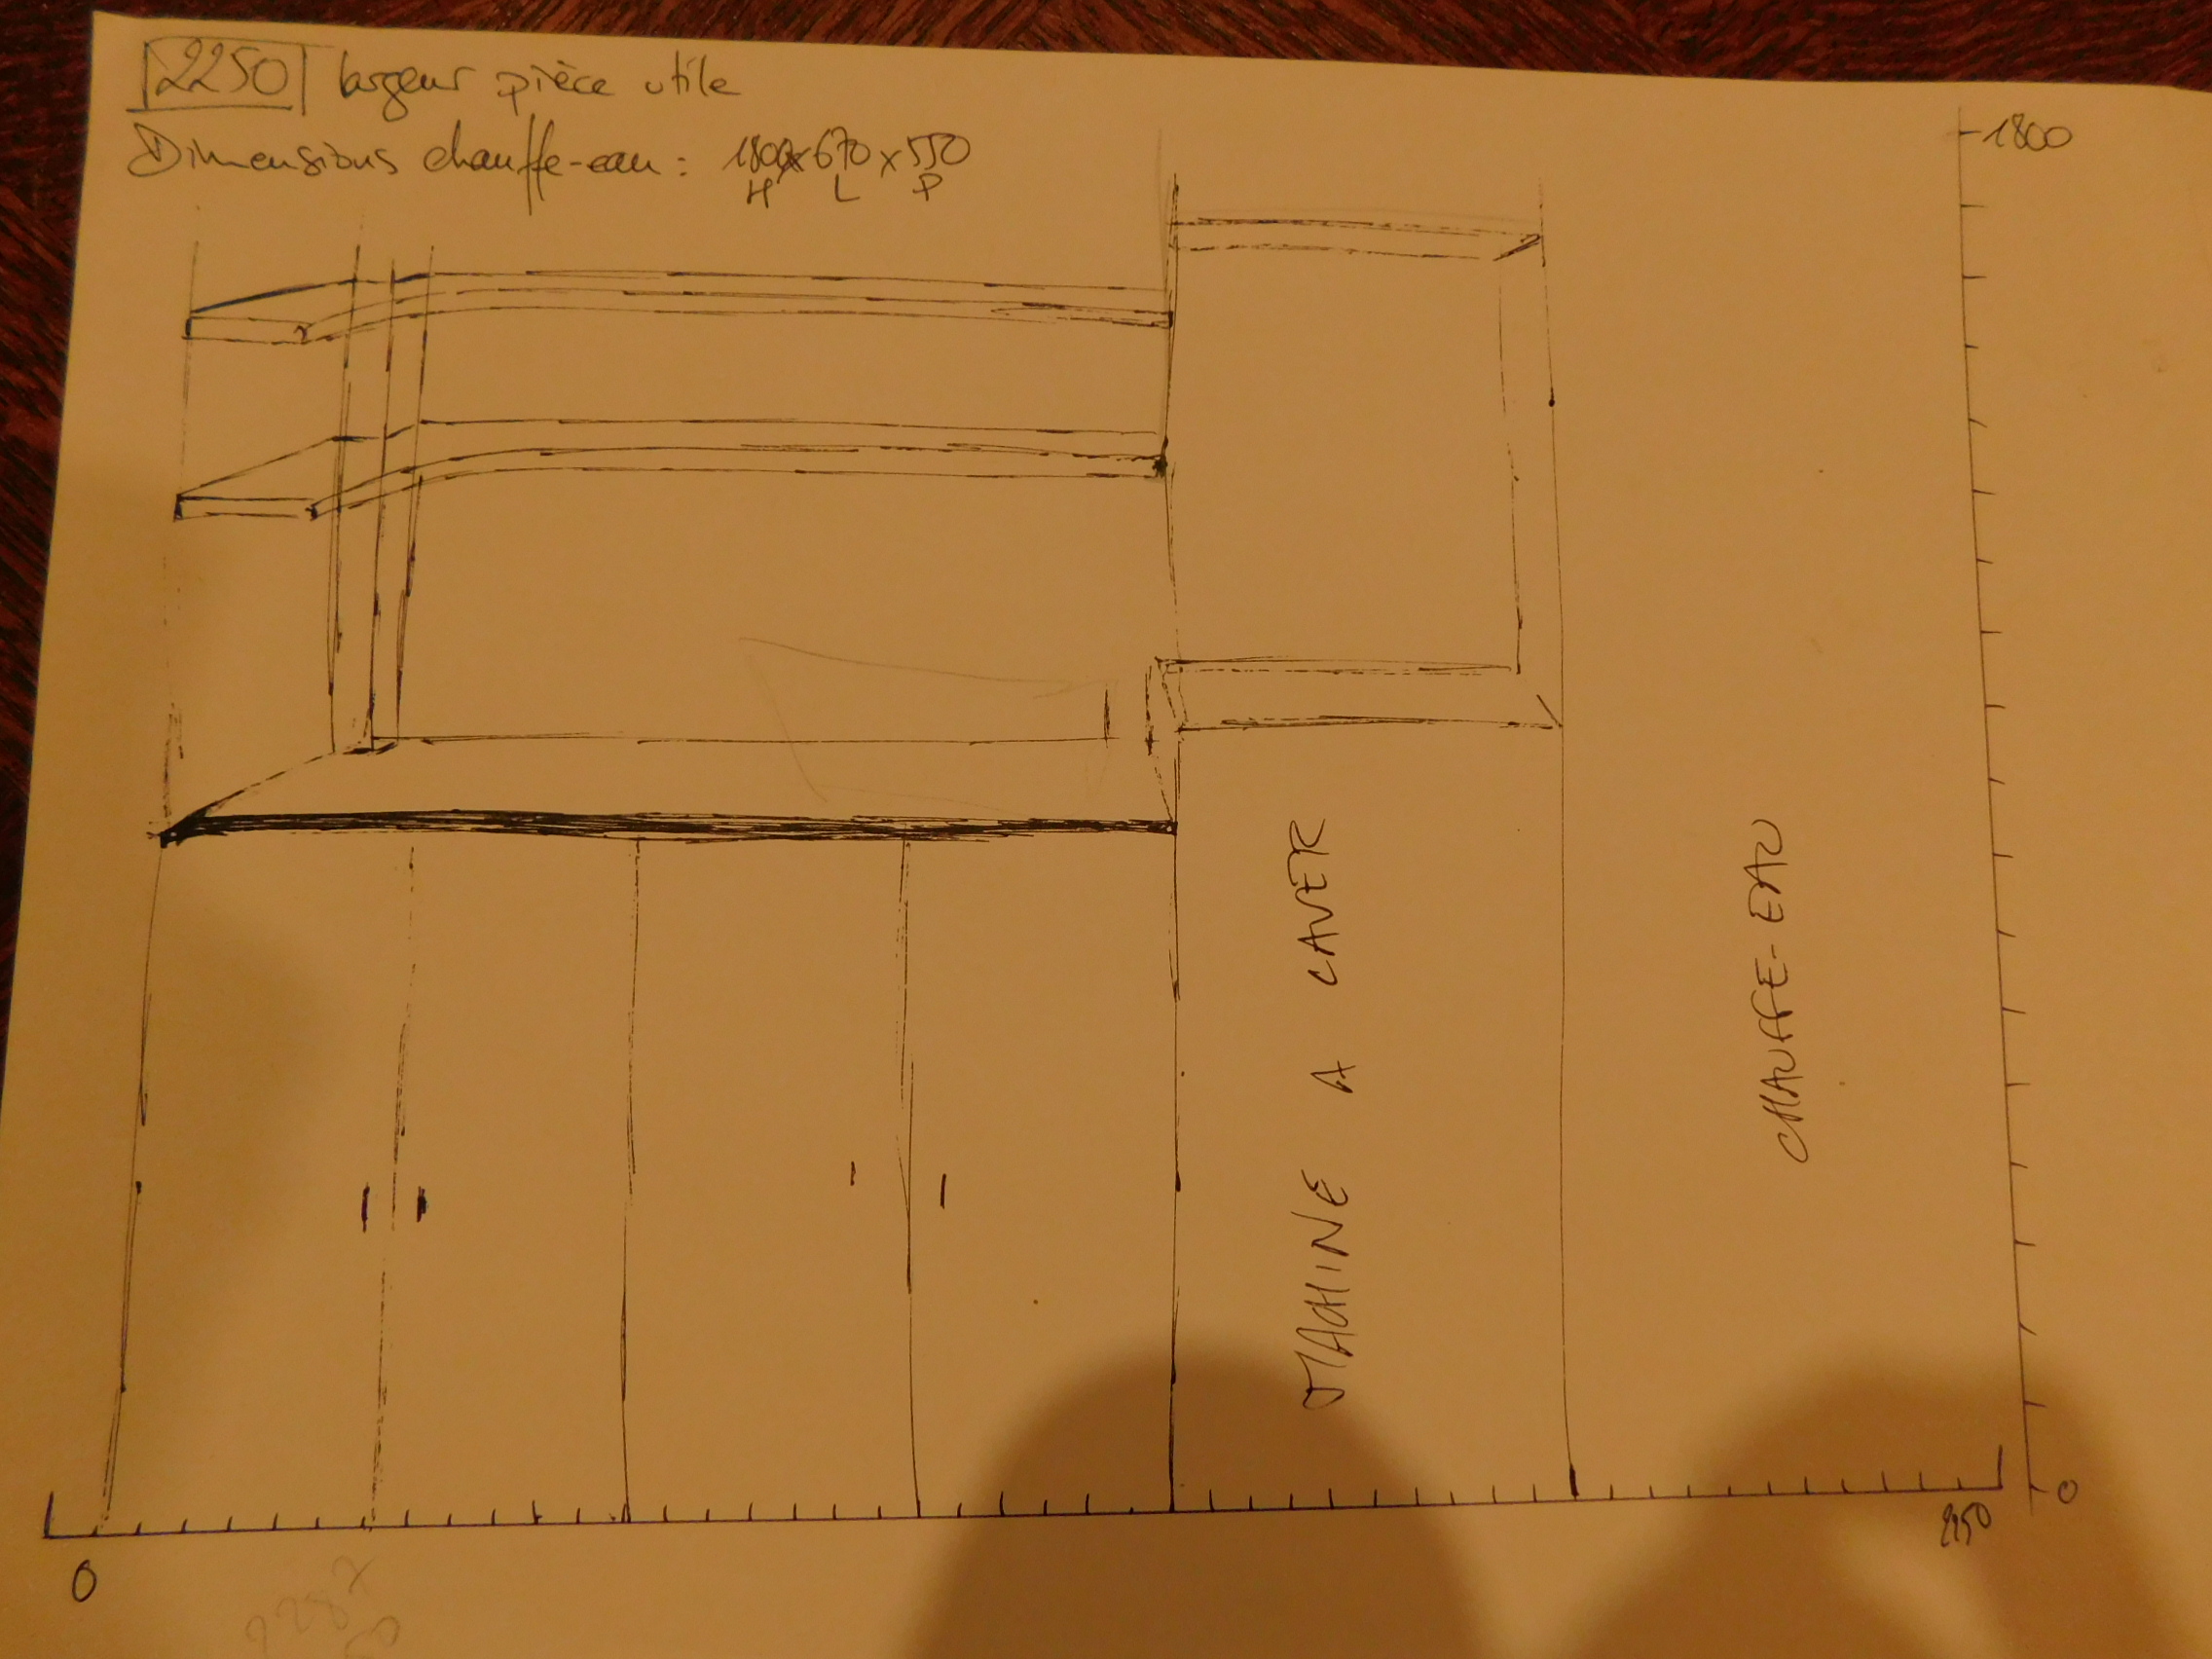 2250 largeur pièce utile
Dimensions chauffe-eau : 1800 x 670 x 550
H L P
1800
MACHINE A LAVER
CHAUFFE-EAU
0
2250
0